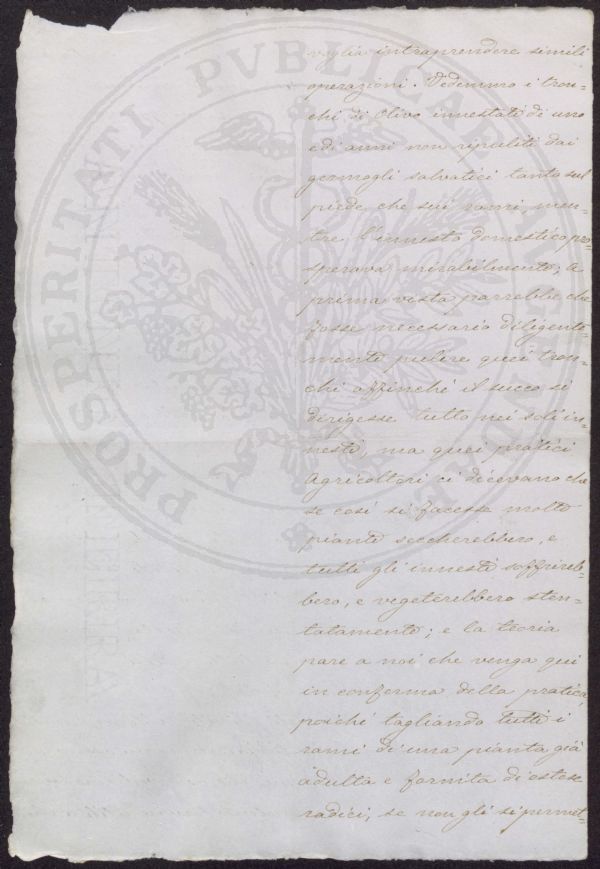 voglia intraprendere simili
operazioni. Vedemmo i tron=
chi di Olivo innestati di uno
e di anni non ripuliti dai
germogli salvatici tanto sul
piede, che sui rami, men=
tre l'innesto domestico pro=
sperava mirabilmente; a
prima vista parrebbe che
fosse necessario diligente=
mente pulire quei tron=
chi affinché il succo si
dirigesse tutto nei soli in=
nesti, ma quei pratici
Agricoltori ci dicevano che
se così si facesse molte
piante seccherebbero, e
tutti gli innesti soffrireb=
bero, e vegeterebbero sten=
tatamente; e la teoria
pare a noi che venga qui
in conferma della pratica,
poiché tagliando tutti i
rami di una pianta già
adulta e fornita di estese
radici, se non gli si permet=
PROSPERITATI PVBLICAE AVGENDAE